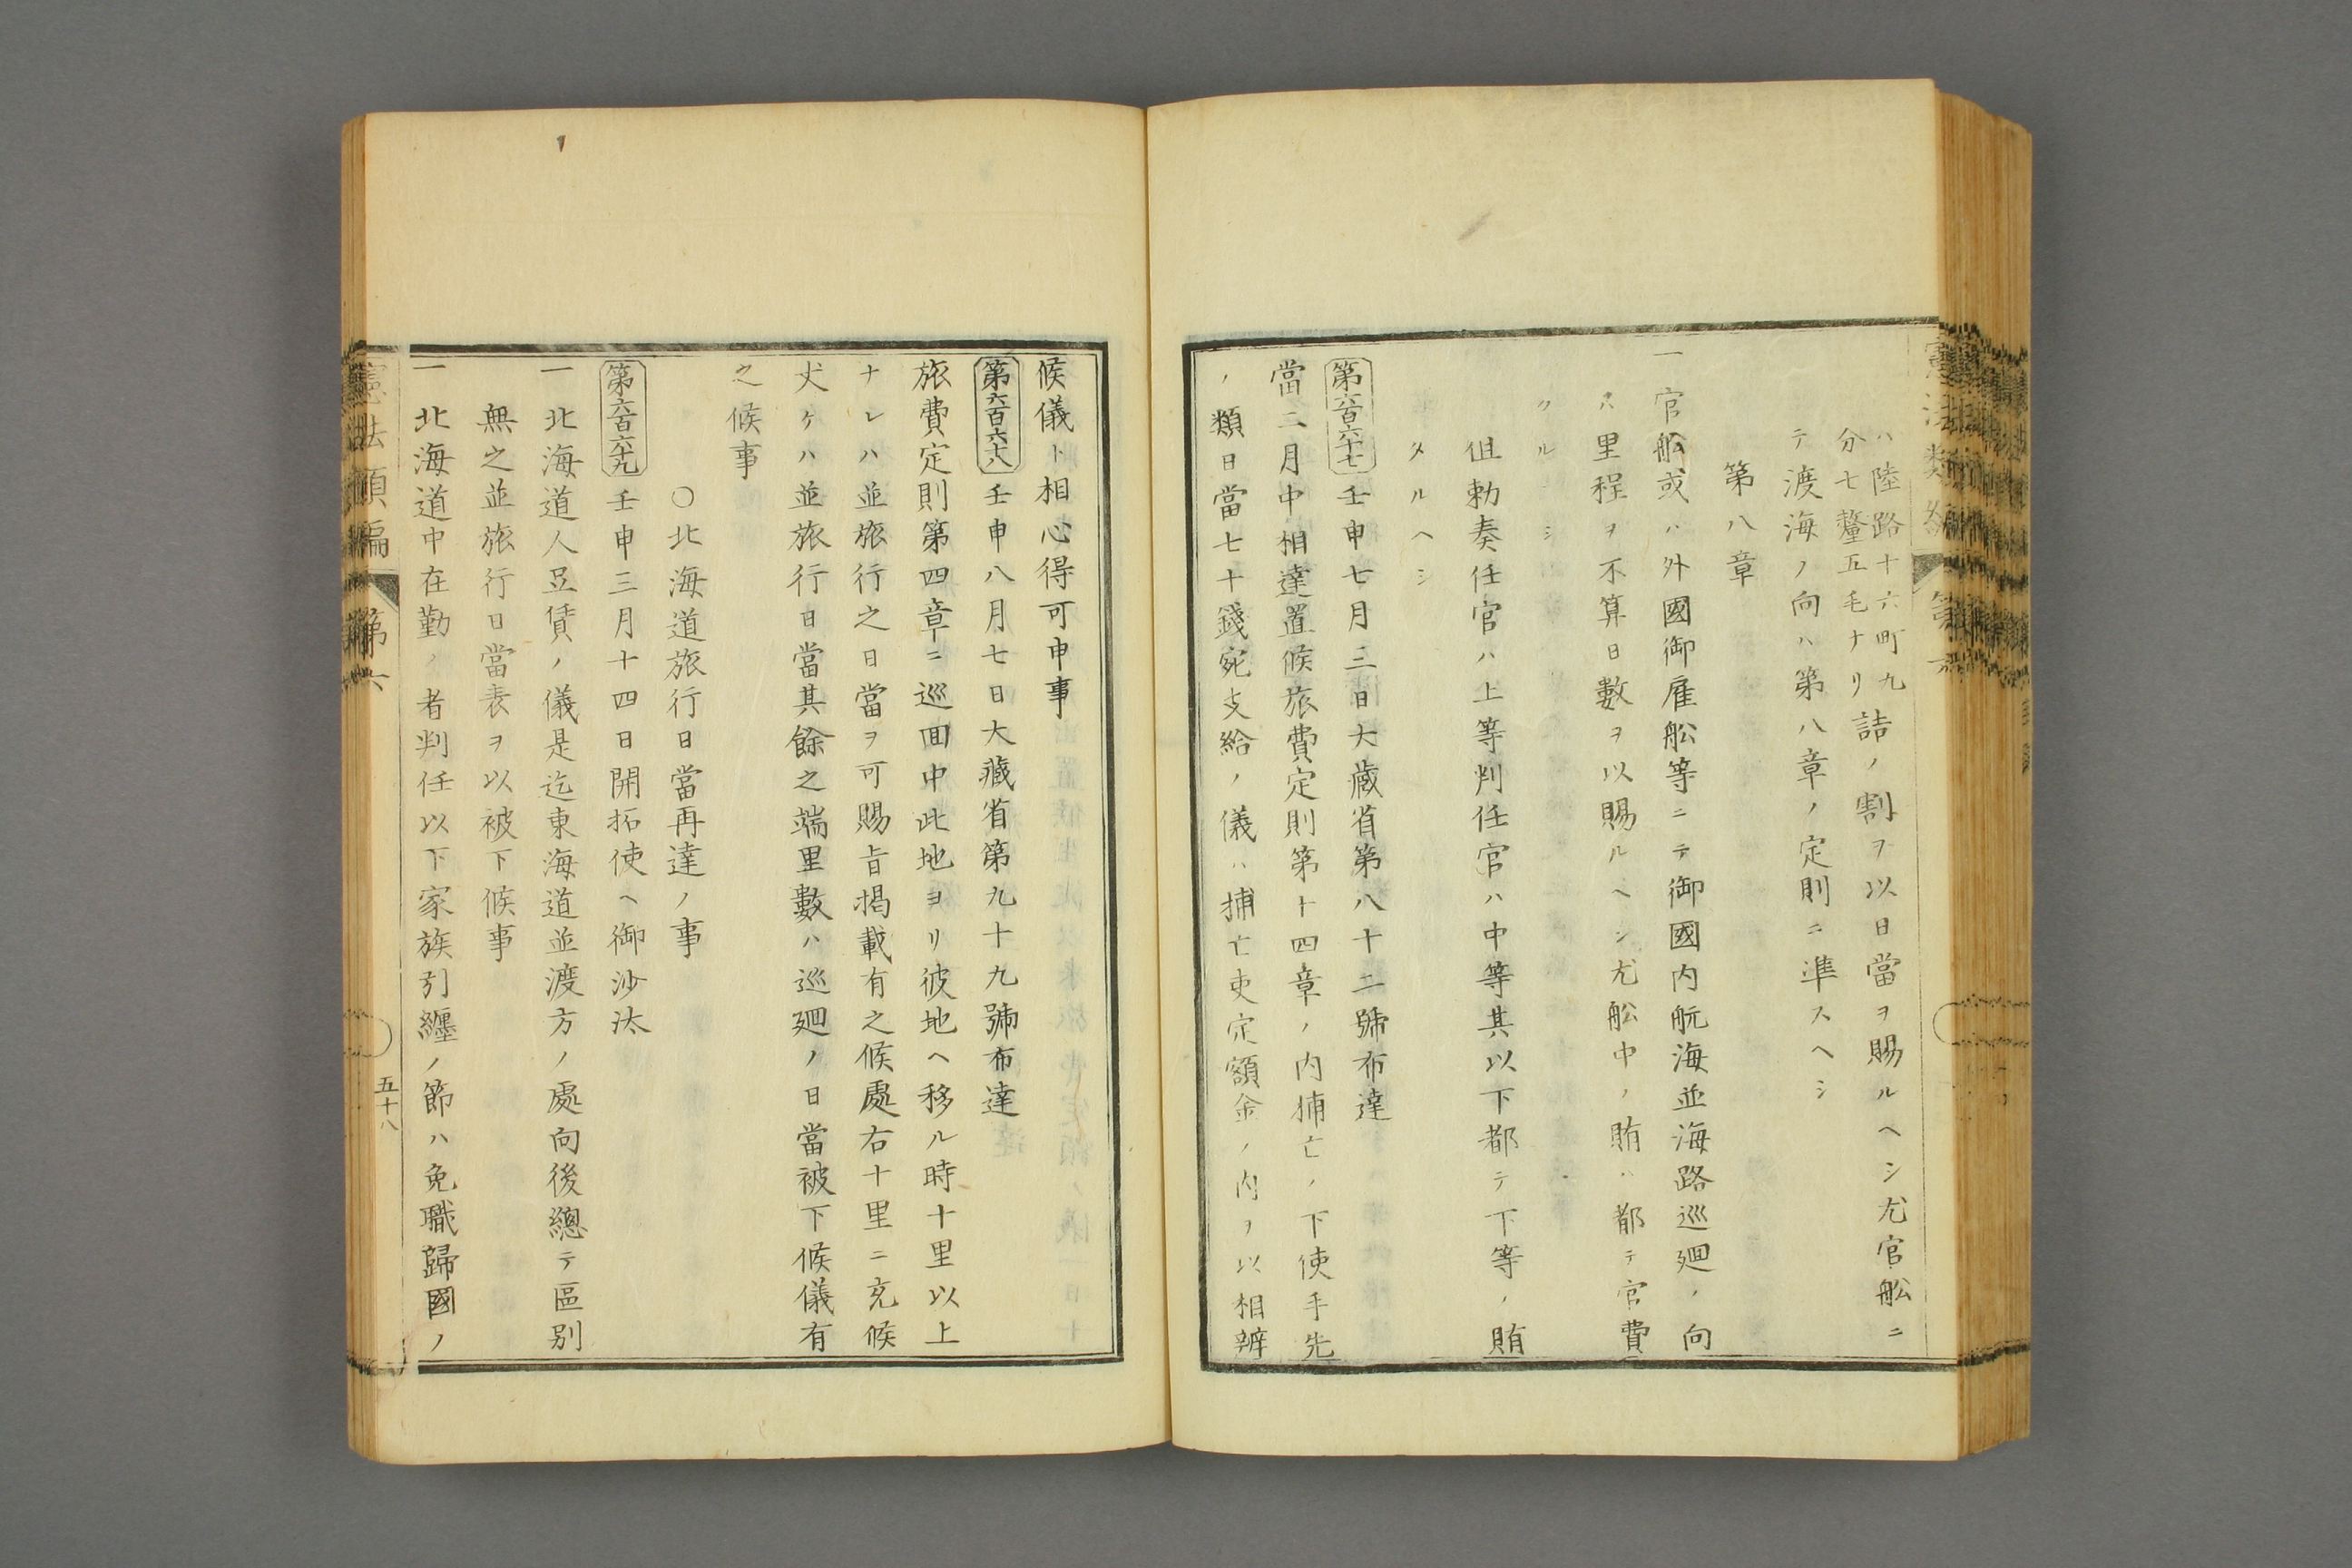 ハ陸路十六町九
分七釐五毛ナリ
詰ノ割ヲ以日當ヲ賜ルヘシ尤官舩ニ
テ渡海ノ向ハ第八章ノ定則ニ準スヘシ
第八章
一官舩或ハ外國御雇舩等ニテ御國内航海並海路巡廻ノ向
ハ里程ヲ不算日數ヲ以賜ルヘシ尤舩中ノ賄ハ都テ官費
タルヘシ
但勅奏任官ハ上等判任官ハ中等其以下都テ下等ノ賄
タルヘシ
第六百六十七壬申七月三日大藏省第八十二號布達
當二月中相達置候旅費定則第十四章ノ内捕亡ノ下使手先
ノ類日當七十錢宛支給ノ儀ハ捕亡吏定額金ノ内ヲ以相辨
候儀ト相心得可申事
第六百六十八壬申八月七日大藏省第九十九號布達
旅費定則第四章ニ巡囬中此地ヨリ彼地ヘ移ル時十里以上
ナレハ並旅行之日當ヲ可賜旨掲載有之候處右十里ニ充候
丈ケハ並旅行日當其餘之端里數ハ巡廻ノ日當被下候儀有
之候事
〇北海道旅行日當再達ノ事
第六百六十九壬申三月十四日開拓使ヘ御沙汰
一北海道人足賃ノ儀是迄東海道並渡方ノ處向後總テ區别
無之並旅行日當表ヲ以被下候事
一北海道中在勤ノ者判任以下家族引纏ノ節ハ免職歸國ノ
憲法類編
第六
五十八